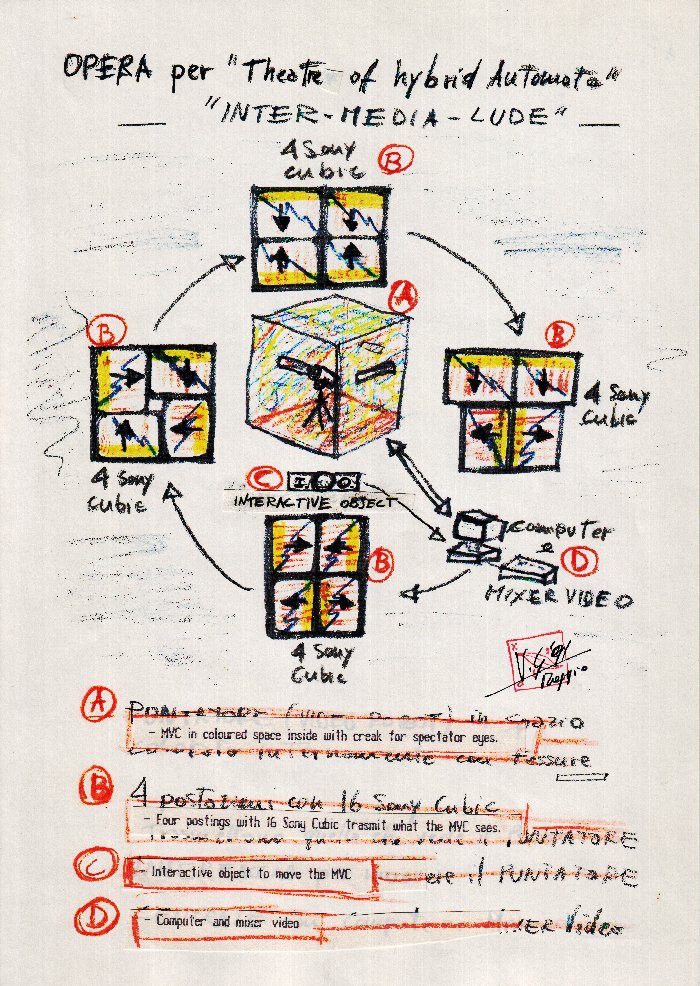 OPERA per "Theatre of hybrid Automata"
"INTER-MEDIA-LUDE"
4 Sony
cubic
B
A
B
B
4 Sony
Cubic
4 Sony
cubic
C
I.O.
INTERACTIVE OBJECT
B
computer
e
D
MIXER VIDEO
4 Sony
Cubic
A
PUNTATORE
- MVC in coloured space inside with creak for spectator eyes.
con fessure
B
4 postazioni con 16 Sony Cubic
- Four postings with 16 Sony Cubic trasmit what the MVC sees.
PUNTATORE
C
- Interactive object to move the MVC
il PUNTATORE
D
- Computer and mixer video
Mixer Video